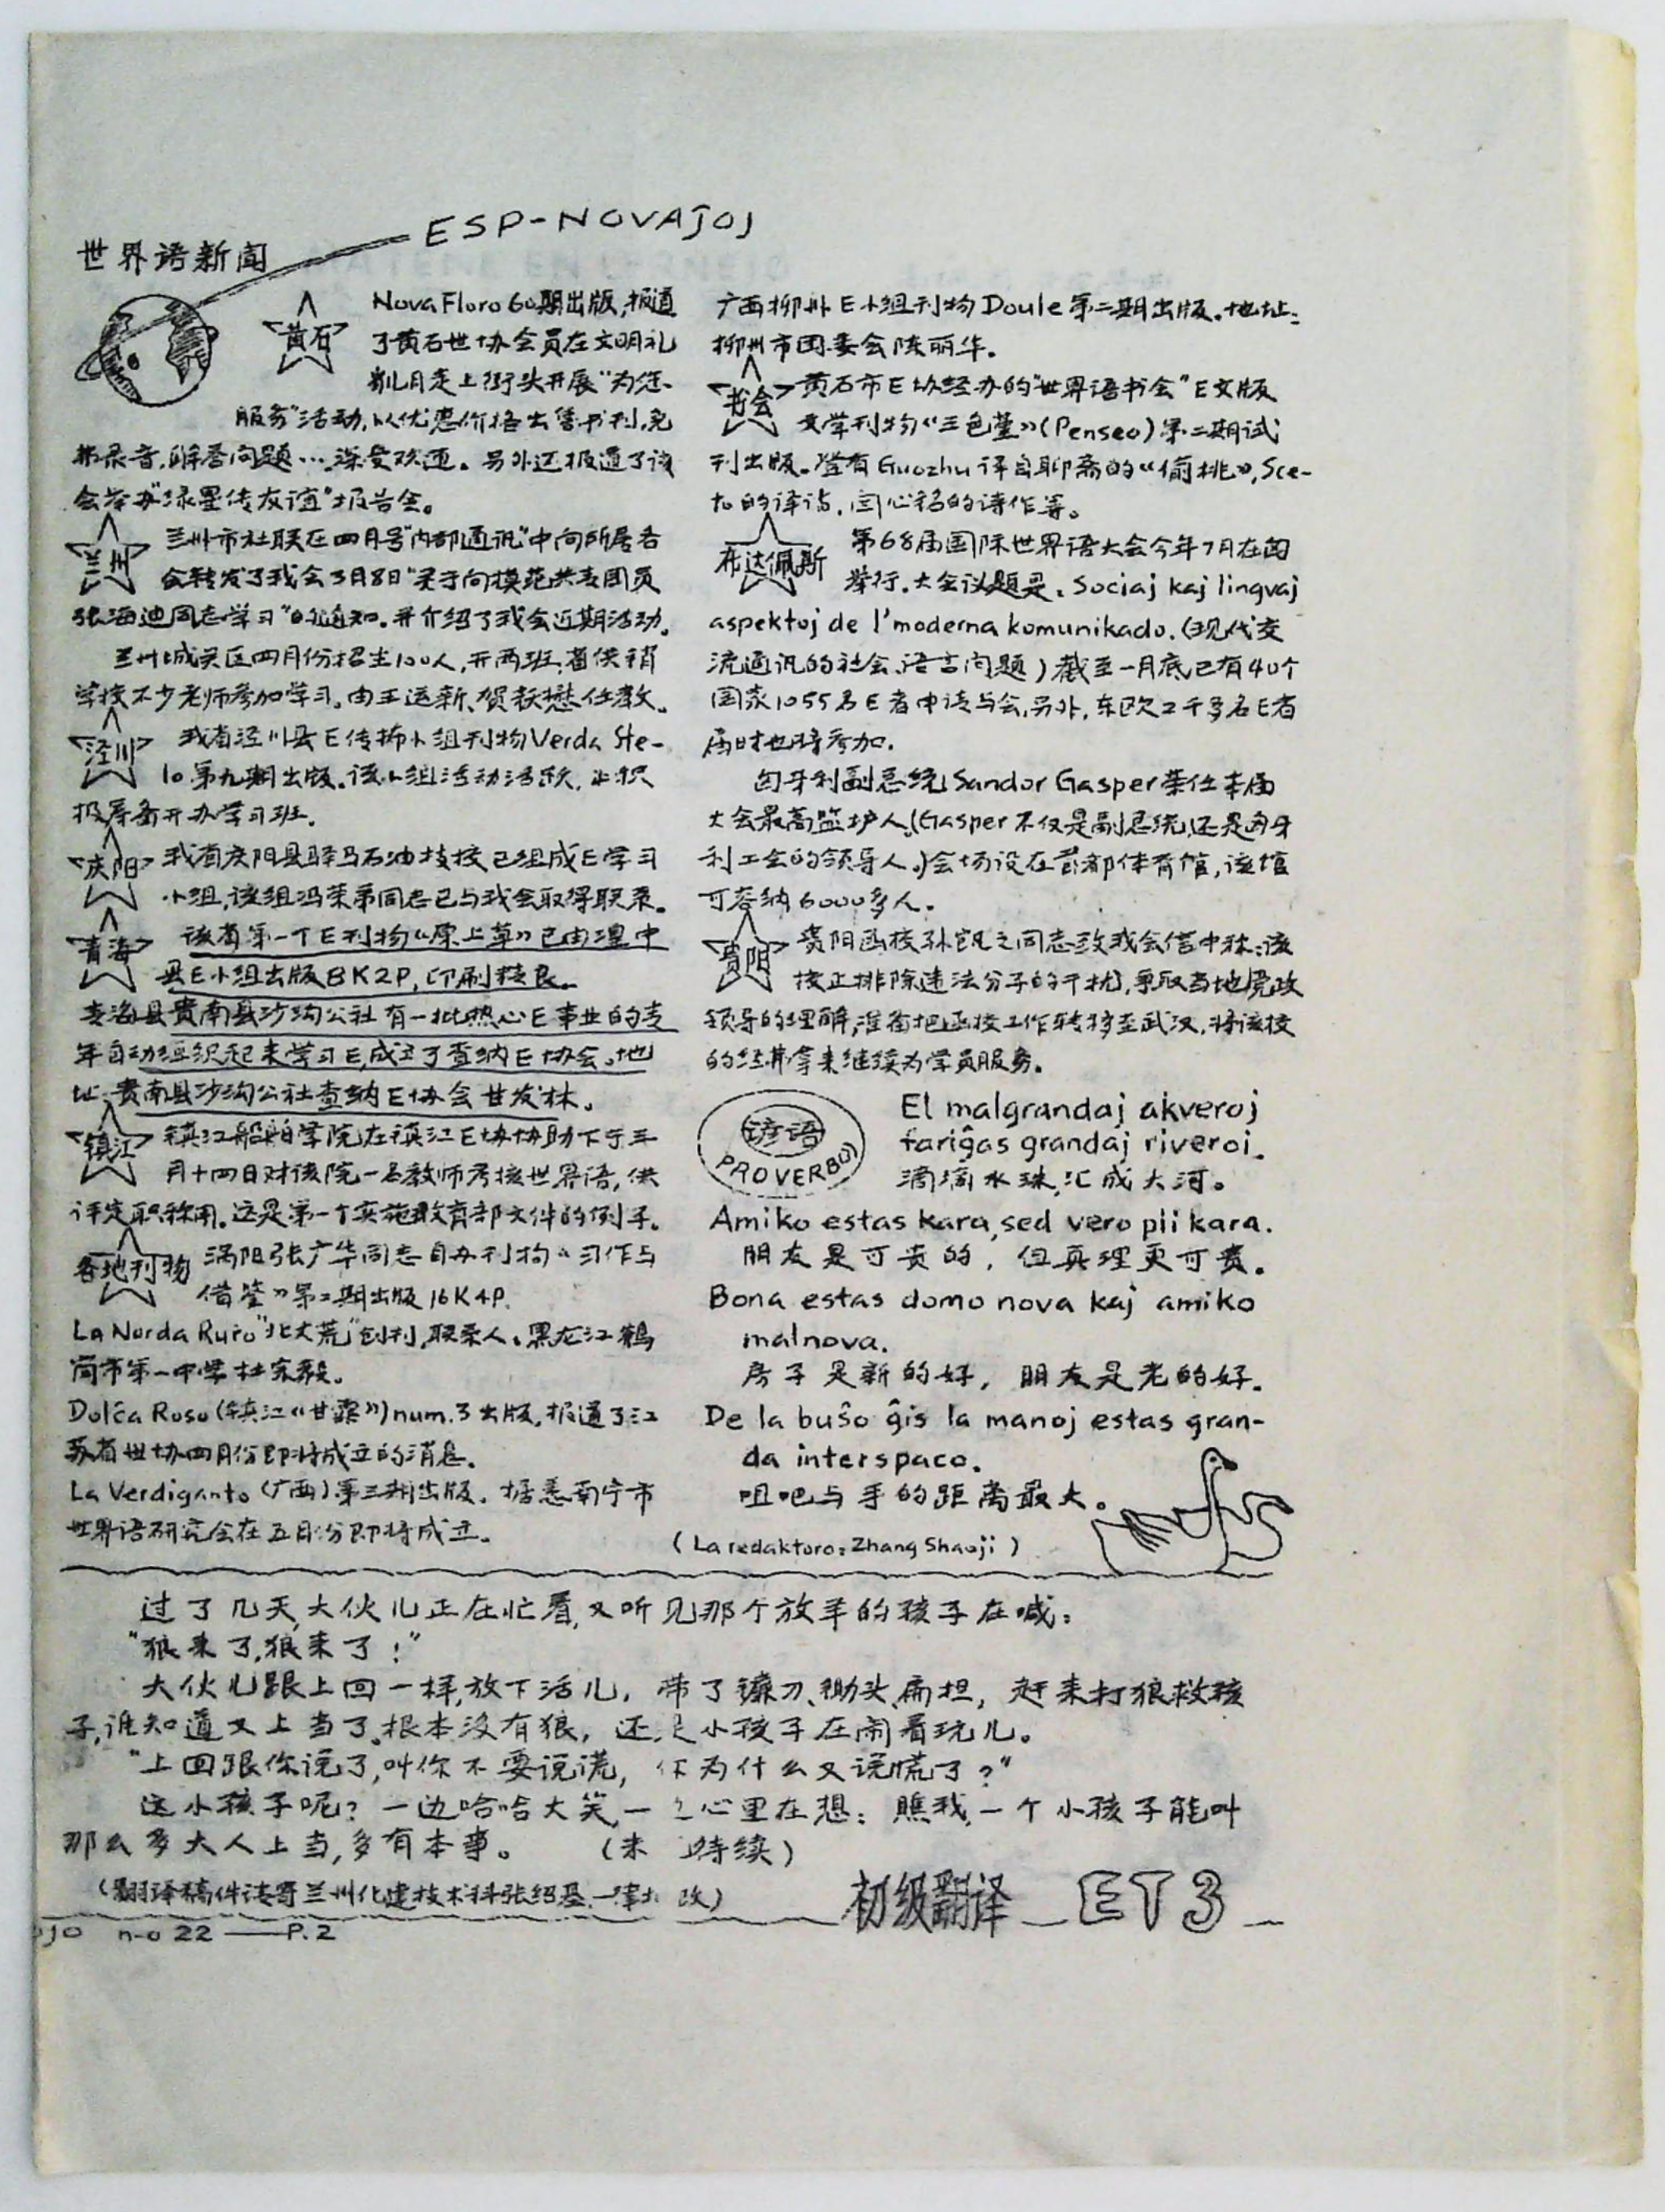 ESP-NOVAĴOJ
世界语新闻
黄石
Nova Floro 60期出版,报道
了黄石世协会员在文明礼
貌月走上街头开展“为您
服务”活动,以优惠价格出售书刊,免
费录音,解答问题…,深受欢迎。另外还报道了该
会举办“绿星传友谊”报告会。
兰州
兰州市社联在四月号“内部通讯”中向所属各
会转发了我会3月8日“关于向模范共青团员
张海迪同志学习”的通知。并介绍了我会近期活动。
兰州城关区四月份招生100人,开两班,省供销
学校不少老师参加学习。由王运新、贺获懋任教。
泾川
我省泾川县E传播小组刊物Verda Ste-
lo 第九期出版。该小组活动活跃,正积
极筹备开办学习班.
庆阳
我省庆阳县驿马石油技校已组成E学习
小组,该组冯荣弟同志已与我会取得联系。
青海
该省第一个E刊物《原上草》已由湟中
县E小组出版8K2P,印刷精良。
青海县贵南县沙沟公社有一批热心E事业的青
年自动组织起来学习E,成立了查纳E协会。地
址:贵南县沙沟公社查纳E协会甘发林。
镇江
镇江船舶学院在镇江E协协助下于三
月十四日对该院一名教师考核世界语,供
评定职称用。这是第一个实施教育部文件的例子。
各地刊物
涡阳张广华同志自办刊物《习作与
借鉴》第2期出版16K4P.
La Norda Ruro“北大荒”创刊,联系人:黑龙江鹤
岗市第一中学杜宗毅。
Dolĉa Roso(镇江《甘露》)num.3出版,报道了江
苏省世协四月份即将成立的消息.
La Verdiganto(广西)第三期出版. 据悉南宁市
世界语研究会在五月份即将成立.
广西柳州E小组刊物Doule第二期出版。地址:
柳州市团委会陈丽华.
书会
黄石市E协经办的“世界语书会”E文版
文学刊物《三色堇》(Penseo)第二期试
刊出版。登有Guozhu译自聊斋的《偷桃》,Sce-
to的译诗,的诗作等。
布达佩斯
第68届国际世界语大会今年7月在匈
举行.大会议题是:Sociaj kaj lingvaj
aspektoj de l'moderna komunikado.(现代交
流通讯的社会、语言问题)截至一月底已有40个
国家1055名E者申请与会,另外,东欧2千多名E者
届时也将参加.
匈牙利副总统Sandor Gasper荣任本届
大会最高监护人.(Gasper不仅是副总统,还是匈牙
利工会的领导人.)会场设在首都体育馆,该馆
可容纳6000多人.
贵阳
贵阳函校孙凯之同志致我会信中称:该
校正排除违法分子的干扰,争取当地党政
领导的理解,准备把函校工作转移至武汉,将该校
的经办拿来继续为学员服务.
谚语
PROVERBOJ
El malgrandaj akveroj
fariĝas grandaj riveroj.
滴滴水珠,汇成大河。
Amiko estas kara,sed vero pli kara.
朋友是可贵的,但真理更可贵。
Bona estas domo nova kaj amiko
malnova.
房子是新的好,朋友是老的好.
De la buŝo ĝis la manoj estas gran-
da interspaco.
咀吧与手的距离最大。
(La redaktoro:Zhang Shaoji)
过了几天,大伙儿正在忙着,又听见那个放羊的孩子在喊:
“狼来了,狼来了!”
大伙儿跟上回一样,放下活儿,带了镰刀、锄头、扁担,赶来打狼救孩
子,谁知道又上当了。根本没有狼,还是小孩子在闹着玩儿。
“上回跟你说了,叫你不要说谎,你为什么又说慌了?”
这小孩子呢?一边哈哈大笑,一边心里在想:瞧我,一个小孩子能叫
那么多大人上当,多有本事。 (未完待续)
(翻译稿件请寄兰州化建技术科张绍基一律批改)
初级翻译 ET3
n-o 22 —P.2